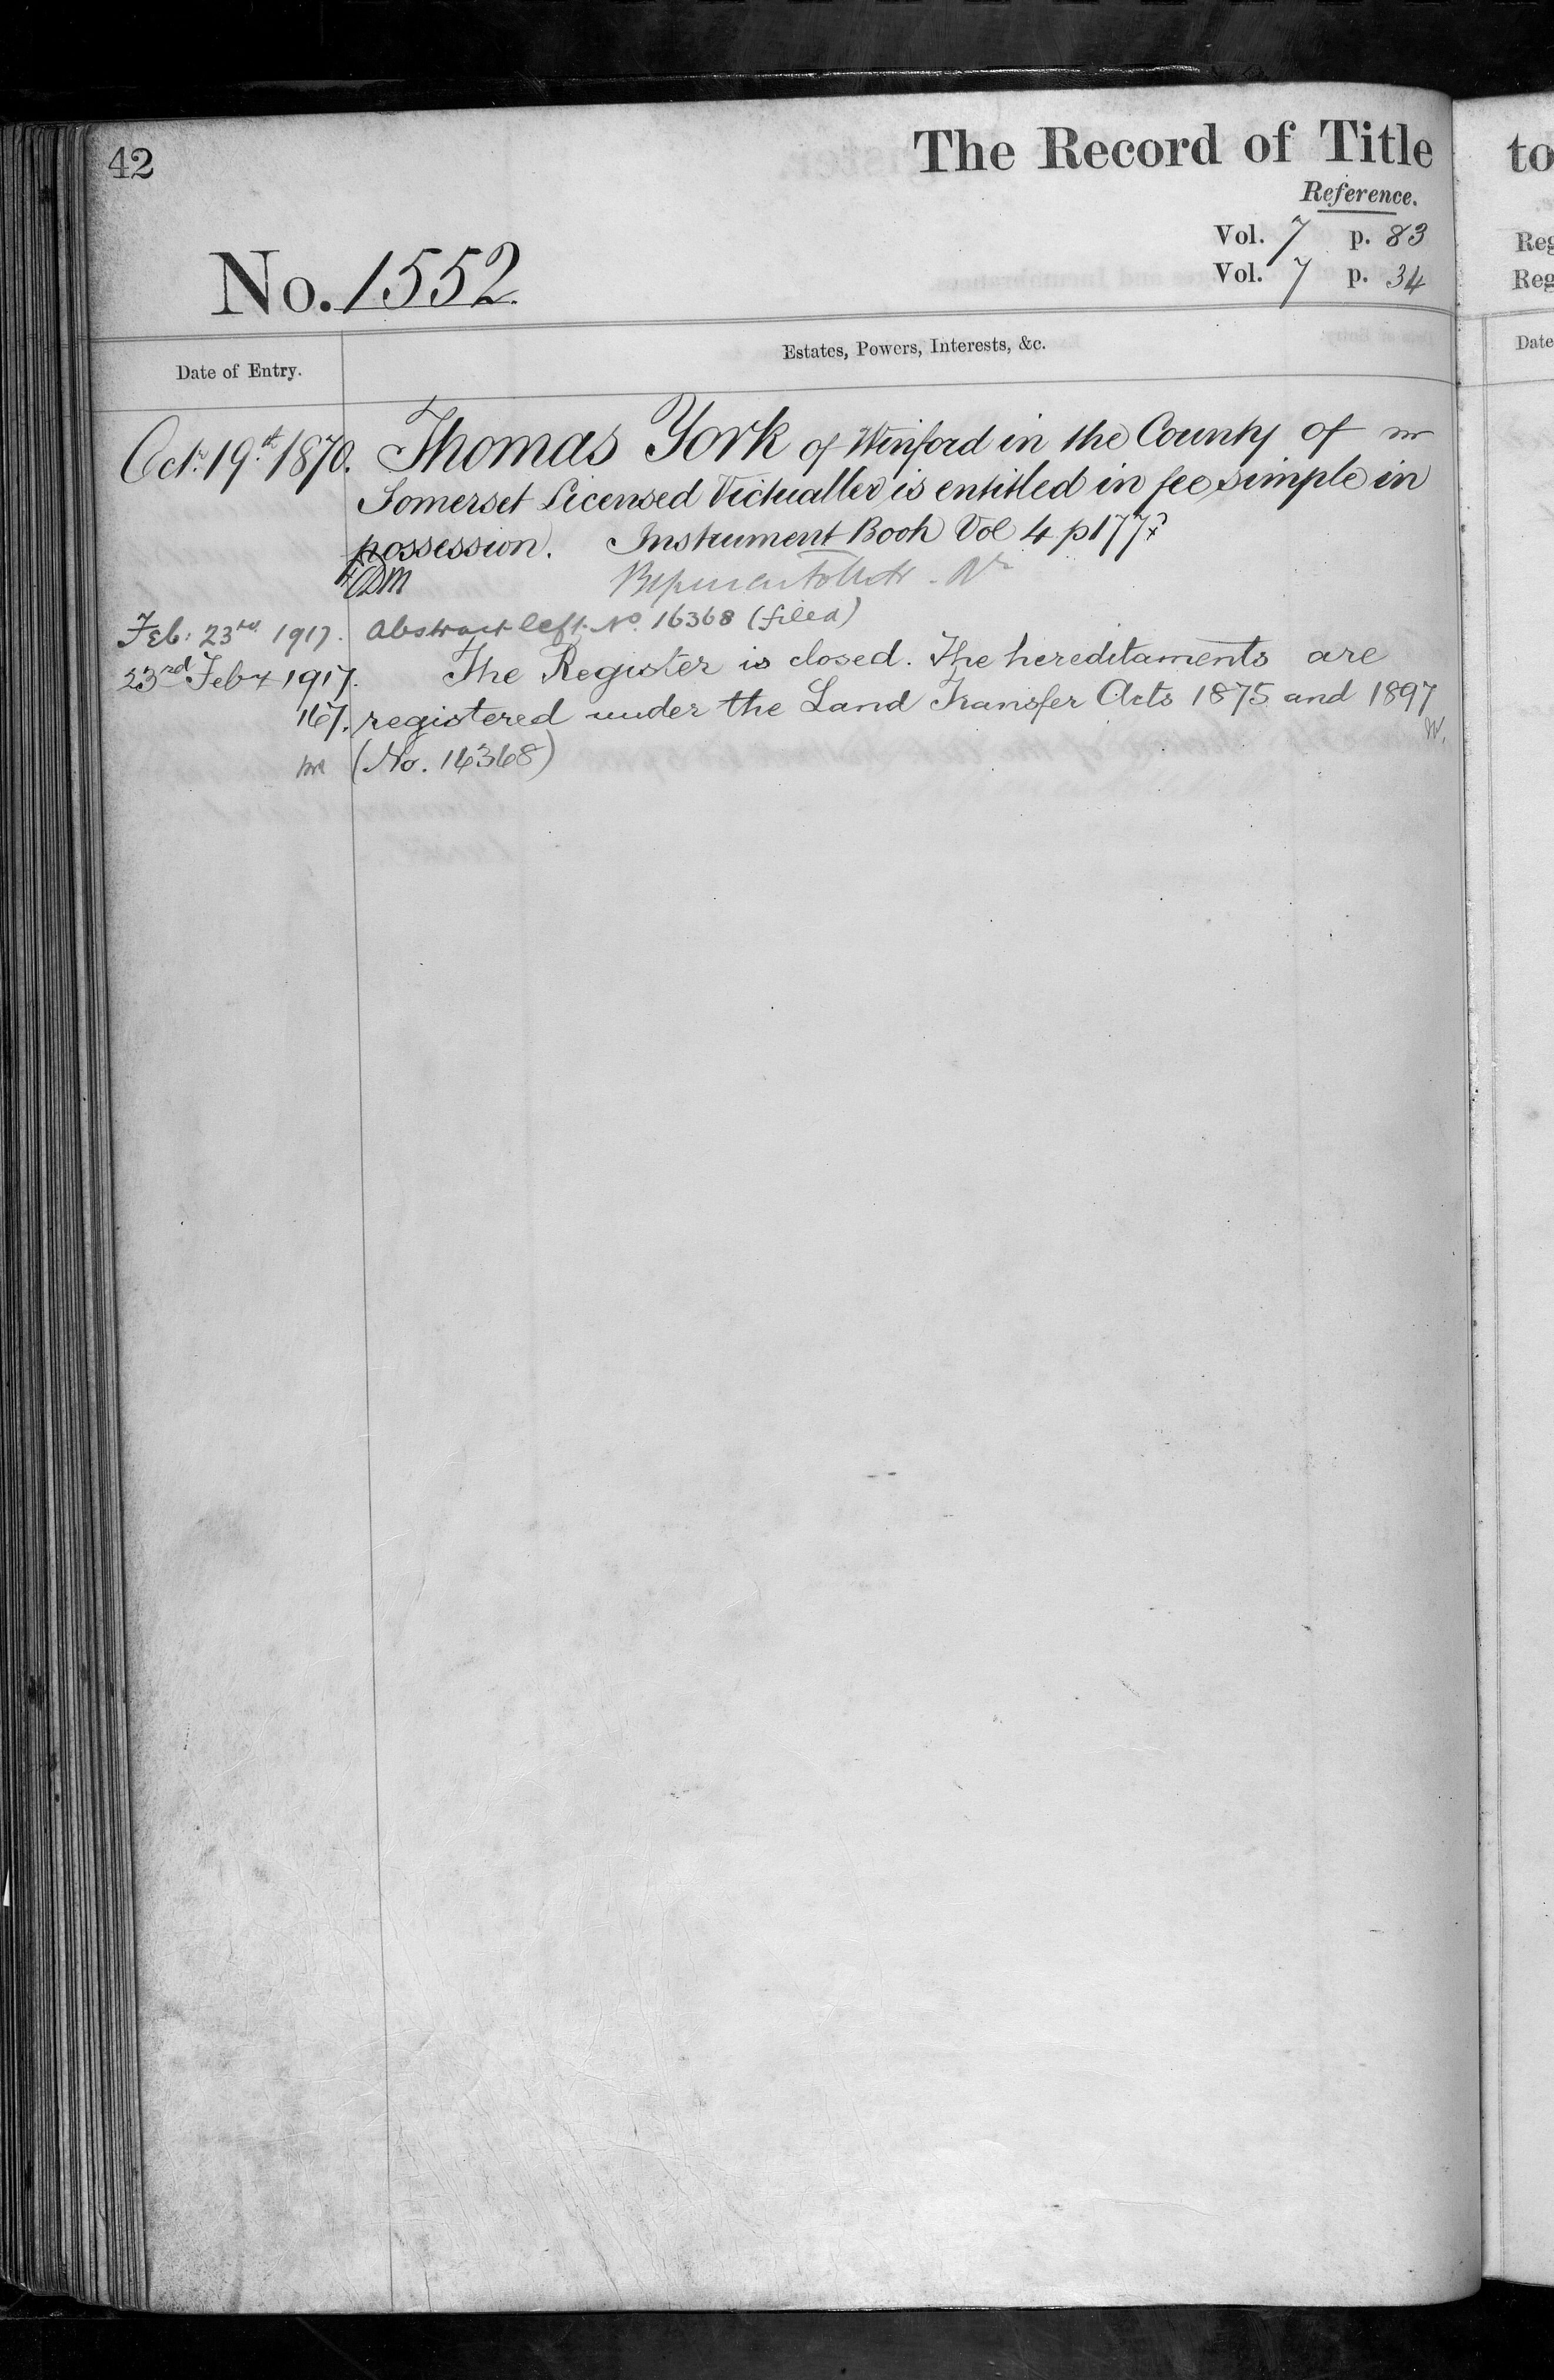 42
The Record of Title
Reference.
Vol. 7 p. 83
Vol. 7 p. 34
No. 1552.
Date of Entry.
Estates, Powers, Interests, &c.
Octr. 19th 1870. Thomas York of Winford in the County of
Somerset Licensed Victualler is entitled in fee simple in
possession. Instrument Book Vol 4 p 177
Feb: 23rd 1917. Abstract left No. 16368 (filed)
23rd Feby 1917. The Register is closed. The hereditaments are
registered under the Land Transfer Acts 1875 and 1897
(No. 16368)
to
Reg
Reg
Date